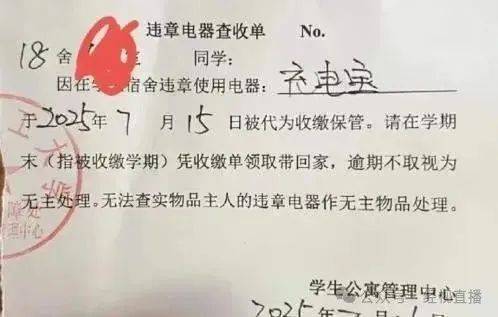 违章电器查收单 No.
18 舍 同学:
因在学 宿舍违章使用电器: 充电宝
于2025年7月15日被代为收缴保管。请在学期
末(指被收缴学期)凭收缴单领取带回家,逾期不取视为
无主处理。无法查实物品主人的违章电器作无主物品处理。
学生公寓管理中心
2025年 月
工大学
障处
管理中心
公众号
直播